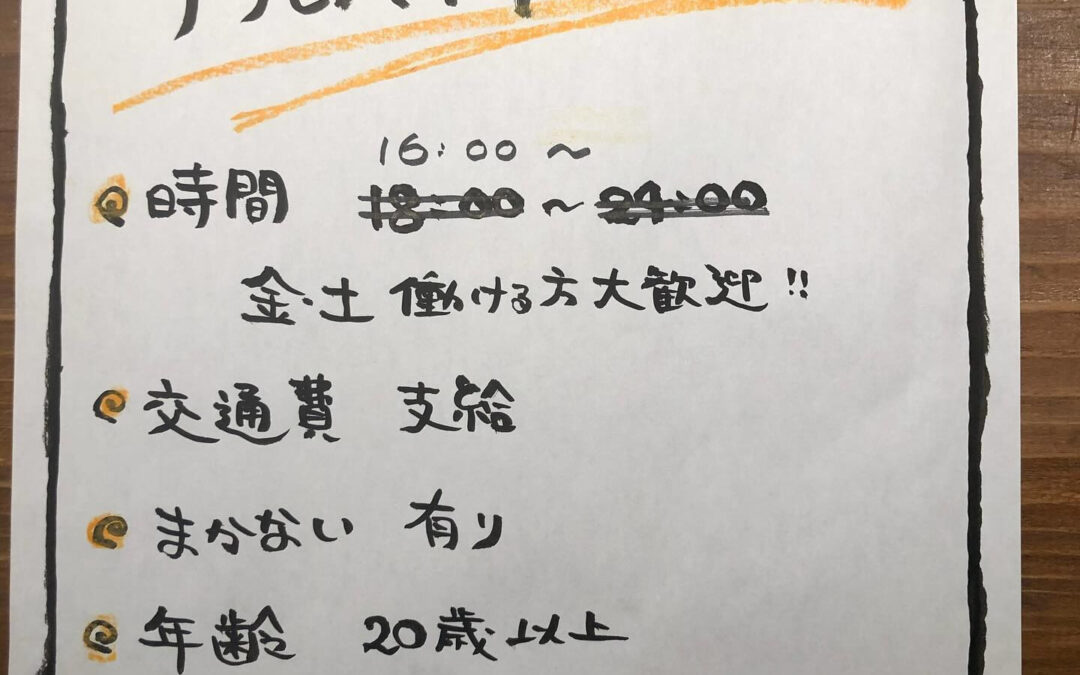 アルバイト
16:00 ~
時間 18:00 ~ 24:00
金・土 働ける方大歓迎!!
交通費 支給
まかない 有り
年齢 20歳以上